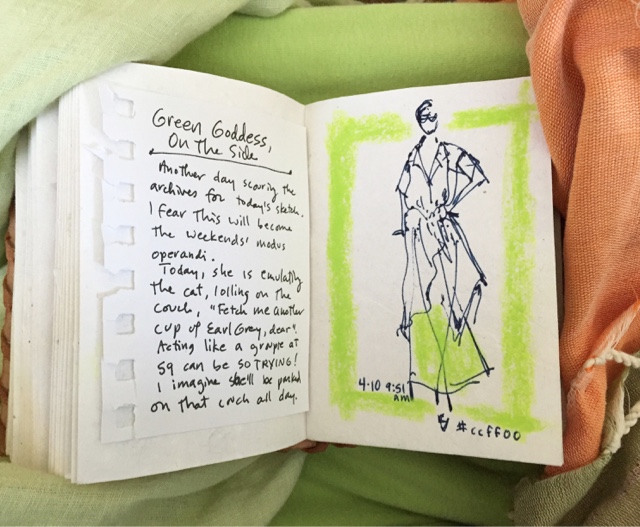 Green Goddess,
On The Side
Another day scouring the
archives for today's sketch.
I fear This will become
the weekends' modus
operandi.
Today, she is emulating
the cat, lolling on the
couch, "Fetch me another
cup of Earl Grey, dear".
Acting like a grownup at
59 can be SO TRYING!
I imagine she'll be parked
on that couch all day.
4.10 9:51
am
#ccff00